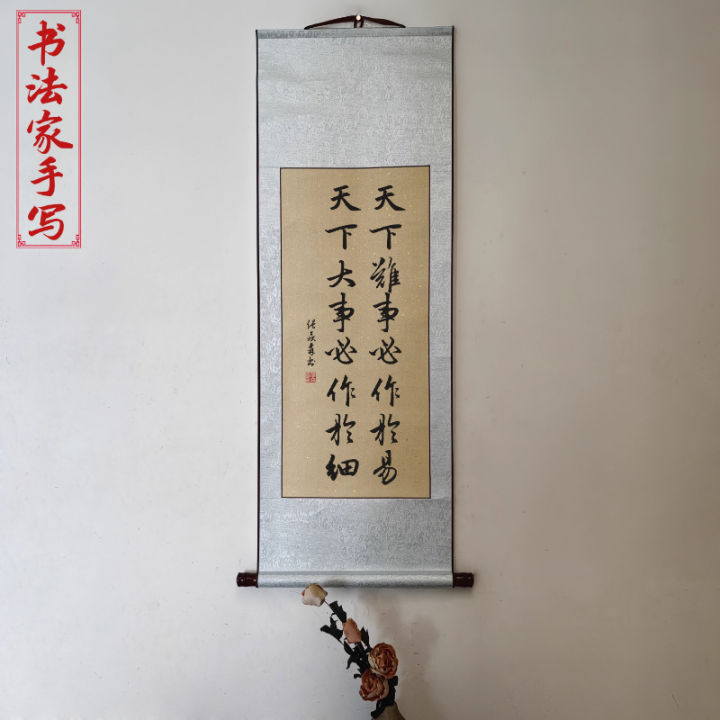 书法家手写
天下難事必作於易
天下大事必作於細